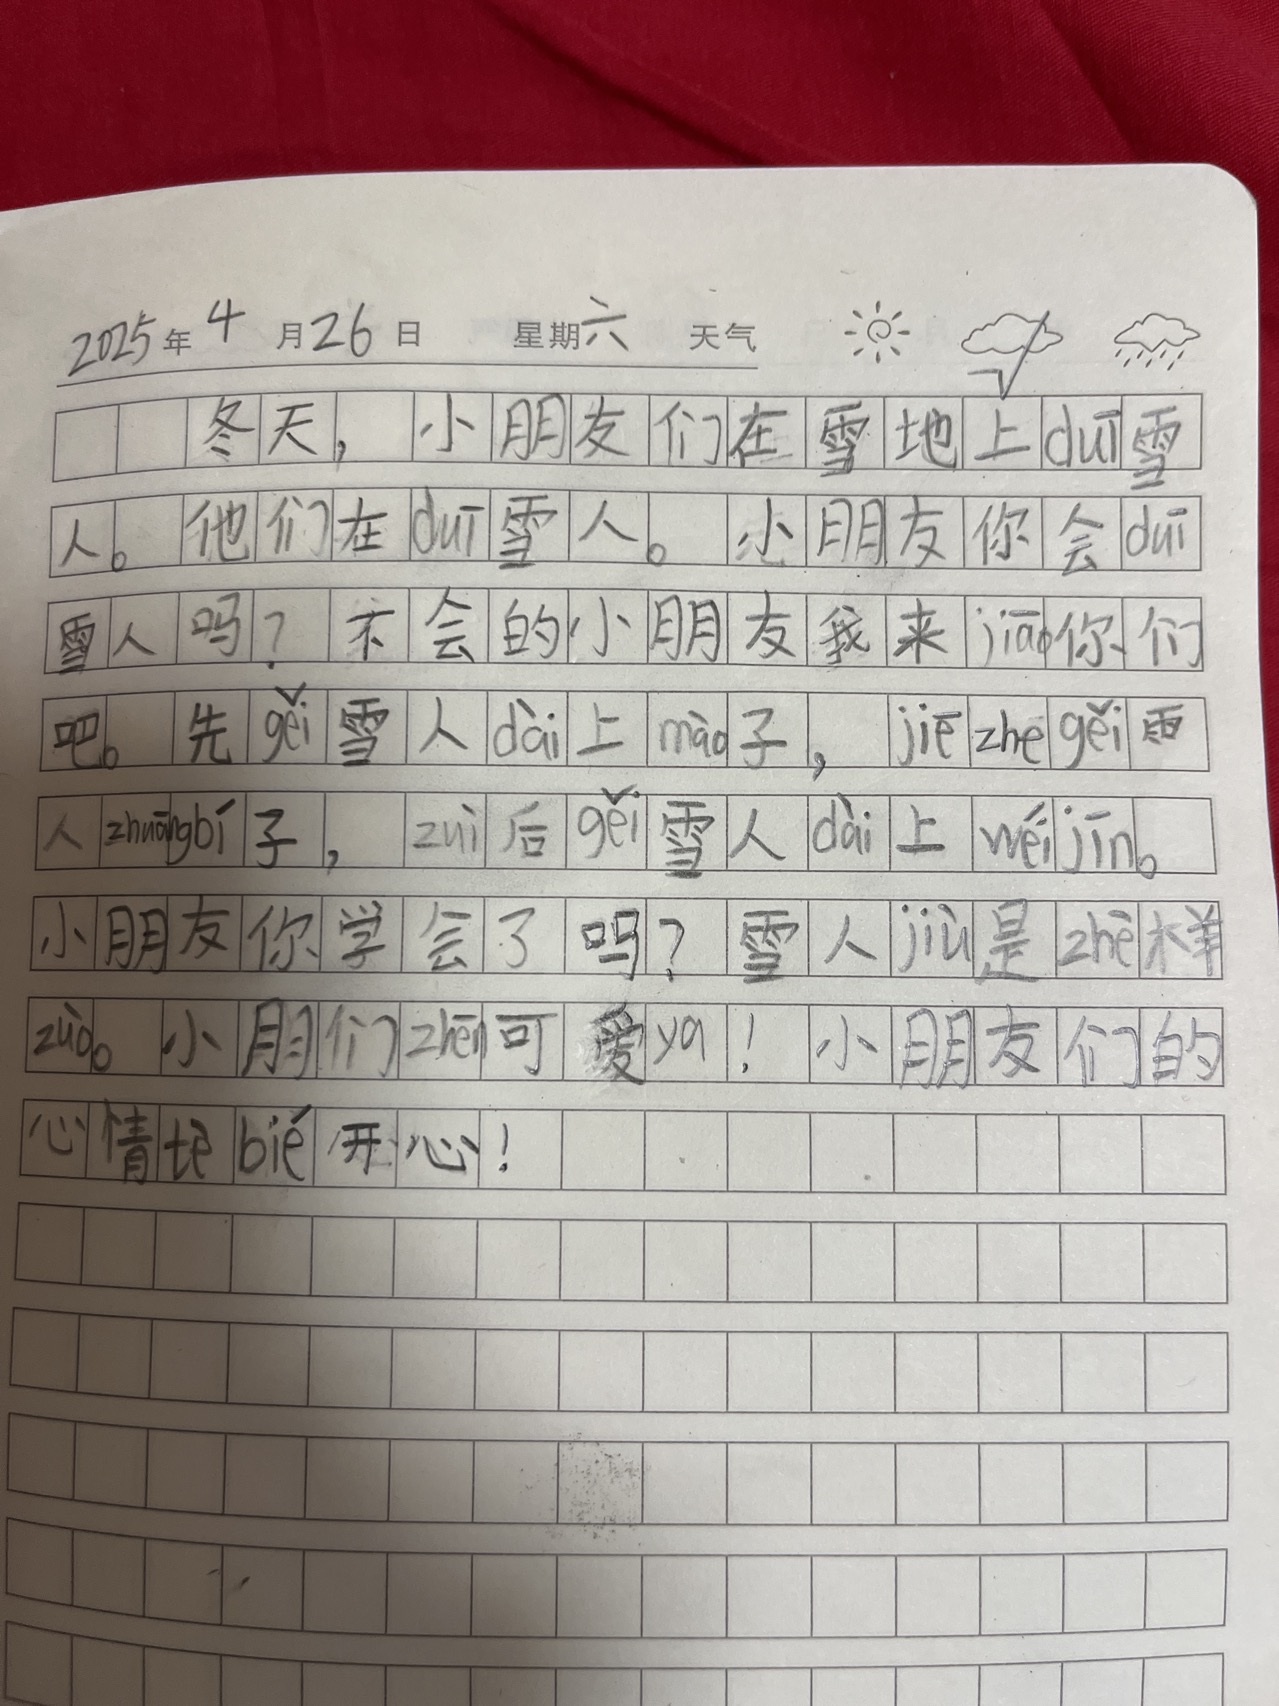 2025年4月26日 星期六 天气
冬天，小朋友们在雪地上duī雪
人。他们在duī雪人。小朋友你会duī
雪人吗？不会的小朋友我来jiāo你们
吧。先gěi雪人dài上mào子，jiē zhe gěi雪
人zhuāng bí子，zuì后gěi雪人dài上wéi jīn。
小朋友你学会了吗？雪人jiù是zhè样
zuò。小朋们zhēn可爱ya！小朋友们的
心情tè bié开心！